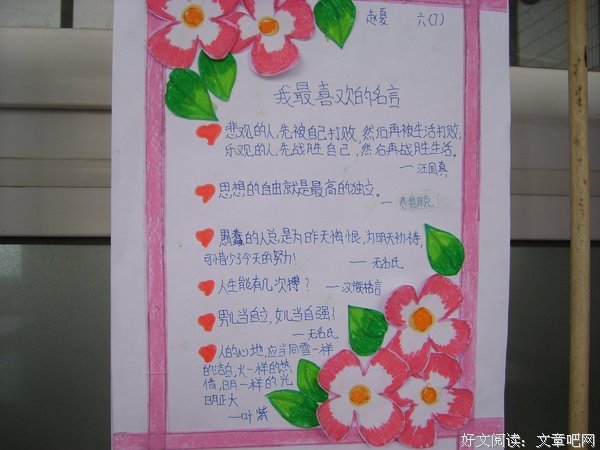 赵夏 六(1)
我最喜欢的名言
悲观的人,先被自己打败,然后再被生活打败,
乐观的人,先战胜自己,然后再战胜生活。
—汪国真
思想的自由就是最高的独立。
—
愚蠢的人总是为昨天悔恨,为明天祈祷,
可惜少了今天的努力!
—无名氏
人生能有几次搏? —汉族格言
男儿当自立,女儿当自强!
—无名氏
人的心地,应当同雪一样
的洁白,火一样的热
情,明一样的光
明正大
—叶紫
好文阅读:文章吧网